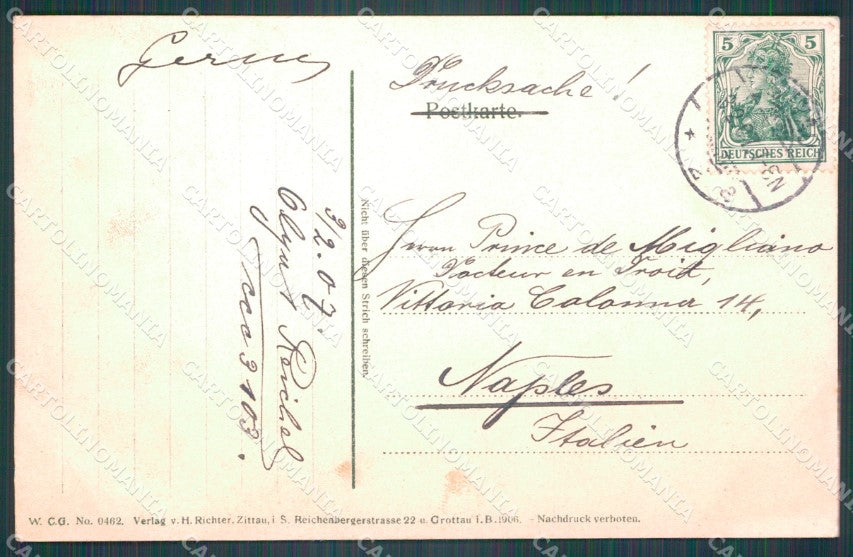 5 5
DEUTSCHES REICH
Drucksache!
Postkarte.
3/2.07.
Reichel
3103.
Nicht über diesen Strich schreiben.
Herrn Prince de Migliano
Docteur en Droit,
Vittoria Colonna 14,
Naples
Italien
W. C.G. No. 0462. Verlag v. H. Richter, Zittau, i. S. Reichenbergerstrasse 22 u. Grottau i. B. 1906. - Nachdruck verboten.
CARTOLINOMANIA